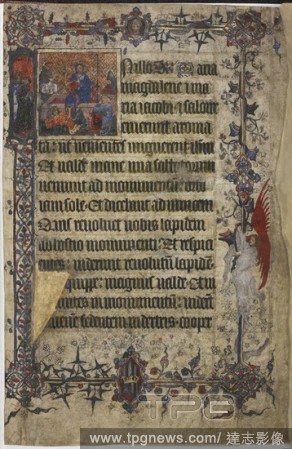 N illo Maria
magdalene ma
ria iacobi salome
emerunt aroma
ta: ut uenientes ungerent ihm
Et ualde mane una sabbatorum
ueniunt ad monumentum
iam sole. Et dicebant ad inuicem
Quis reuoluet nobis lapidem
ab ostio monumenti. Et respici
entes: uiderunt reuolutum lapidem
quippe: magnus ualde. Et in
untes in monumentum:
uuenem sedentem in dextris. coopt
TPG
www.tpgnews.com/ 達志影像